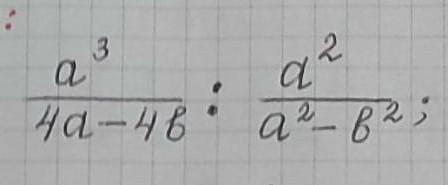 :
a³/(4a-4b) : a²/(a²-b²);